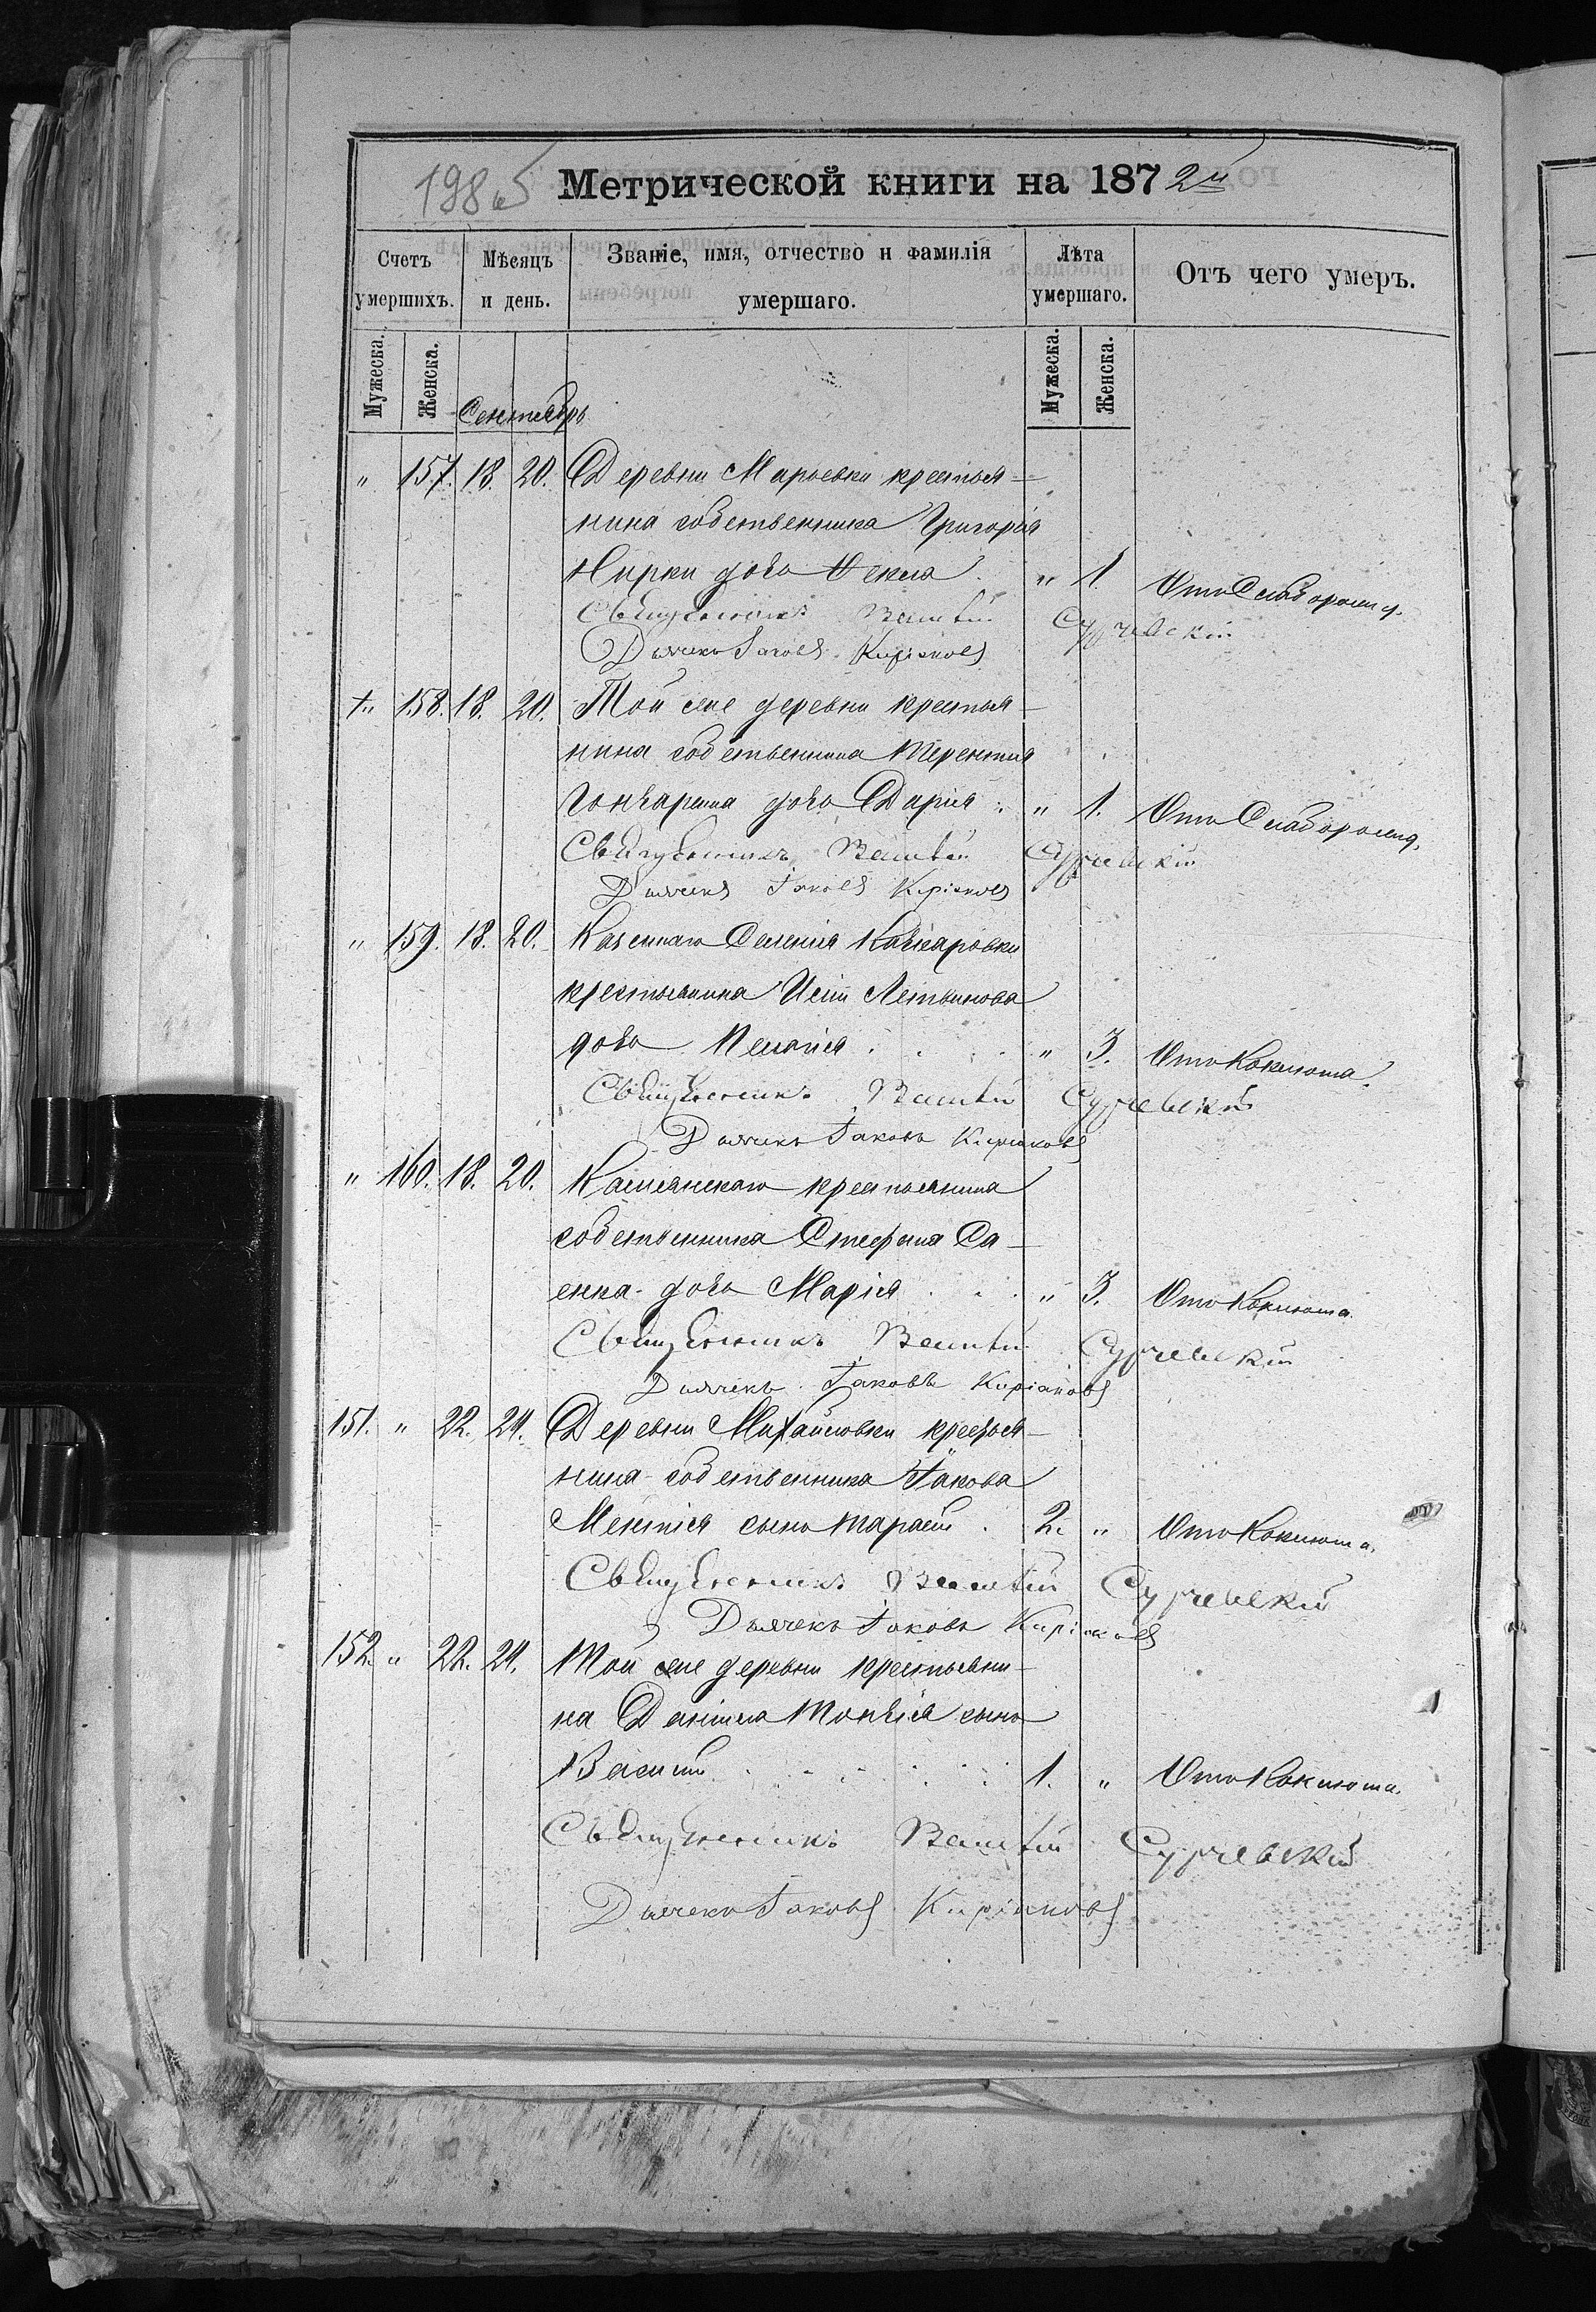 198 об
Метрической книги на 1872й
Счетъ умершихъ.
Мѣсяцъ и день.
Званіе, имя, отчество и фамилія умершаго.
Лѣта умершаго.
Отъ чего умеръ.
Мужеска.
Женска.
Мужеска.
Женска.
Сентябрь
" 157. 18. 20. Деревни Марьевки крестья-
нина собственника Григорія
Нирки дочь Ѳекла. " 1. Отъ Слаборожд.
Священникъ Василій Сурчевскій
Дьячекъ Іаковъ Киріаковъ
+" 158. 18. 20. Той же деревни крестья-
нина собственника Терентия
Гончаренка дочь Дарія. " 1. Отъ Слаборожд.
Священникъ Василій Сурчевскій
Дьячекъ Іаковъ Киріаковъ
" 159. 18. 20. Казеннаго Селенія Качкаровки
крестьянина Литвинова
дочь Пелагія " 3. Отъ Коклюша.
Священникъ Василій Сурчевскій
Дьячекъ Іаковъ Киріаковъ
" 160. 18. 20. крестьянина
собственника Стефана Са-
енка дочь Марія " 3. Отъ Коклюша.
Священникъ Василій Сурчевскій
Дьячекъ Іаковъ Киріаковъ
151. " 22. 24. Деревни Михайловки крестья-
нина собственника Іакова
сынъ Тарасій. 2. " Отъ Коклюша.
Священникъ Василій Сурчевскій
Дьячекъ Іаковъ Киріаковъ
152. " 22. 24. Той же деревни крестьяни-
на Даніила сынъ
Василій 1. " Отъ Коклюша.
Священникъ Василій Сурчевскій
Дьячекъ Іаковъ Киріаковъ